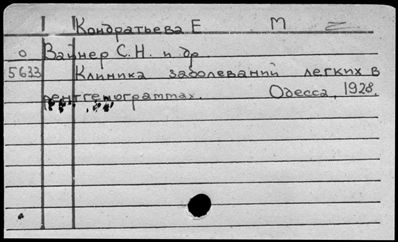 Кондратьева Е М
0 Вайнер С.Н. и др
5633 Клиника заболеваний легких в
рентгенограммах. Одесса, 1928.